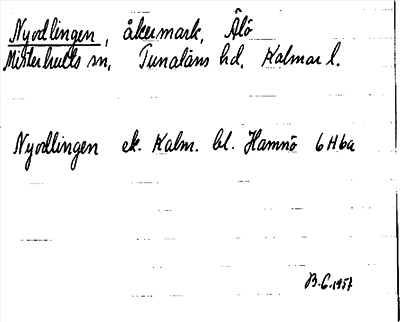 Nyodlingen, åkermark, Älö
Misterhults sn, Tunaläns hd, Kalmar l.
Nyodlingen ek. Kalm. bl. Hamnö 6H6a
B.C. 1957